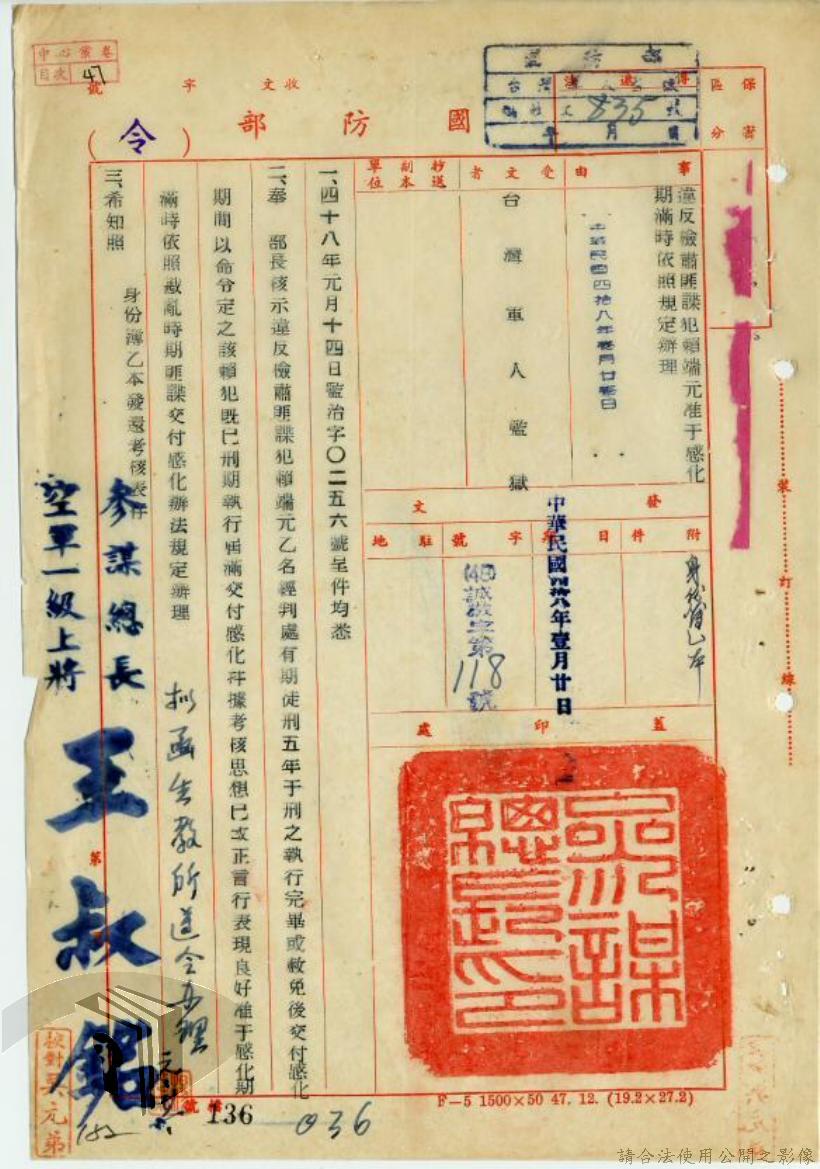 中心彙卷
目次 47
收文 字 號
國防部(令)
835
保密
區分
事由
違反檢肅匪諜犯賴端元准于感化
期滿時依照規定辦理
中華民國四拾八年壹月廿壹日
受文者
台灣軍人監獄
抄送副本單位
發文
附件
身份簿乙本
日期
中華民國四拾八年壹月廿日
字號
(48)誠敬字第118號
駐地
蓋印處
參謀總長之印
一、四十八年元月十四日監治字〇二五六號呈件均悉
二、奉 部長核示違反檢肅匪諜犯賴端元乙名經判處有期徒刑五年于刑之執行完畢或赦免後交付感化
期間以命令定之該賴犯既已刑期執行屆滿交付感化并據考核思想已改正言行表現良好准于感化期
滿時依照戡亂時期匪諜交付感化辦法規定辦理
三、希知照
身份簿乙本發還考核表存
參謀總長
空軍一級上將 王叔銘
擬函生教所遵令辦理
裝訂線
第
檔號
136
036
152
校對吳元弟
F—5 1500×50 47. 12. (19.2×27.2)
請合法使用公開之影像